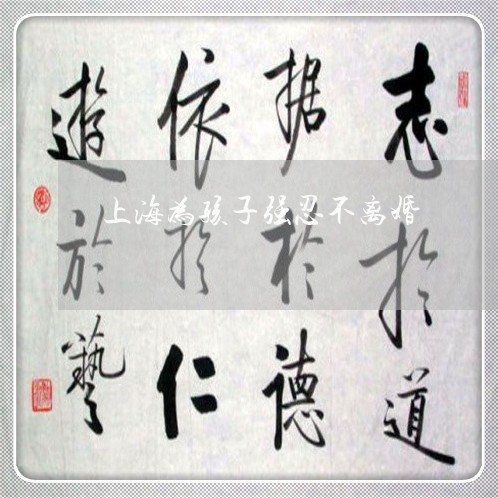 志於道
据於德
依於仁
遊於藝
上海為孩子强忍不离婚